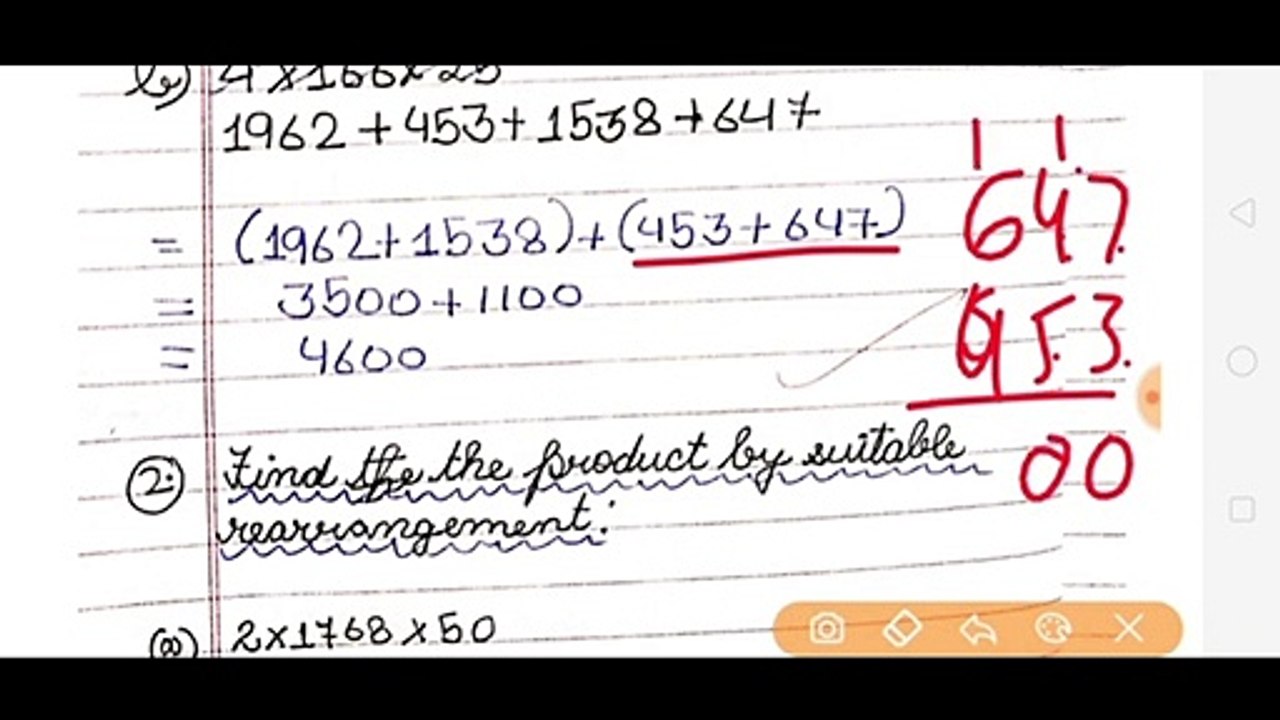 b) 4×166×25
1962+453+1538+647
= (1962+1538)+(453+647)
= 3500+1100
= 4600
1 1
647
453
00
2. Find the the product by suitable
rearrangement:
(a) 2×1768×50